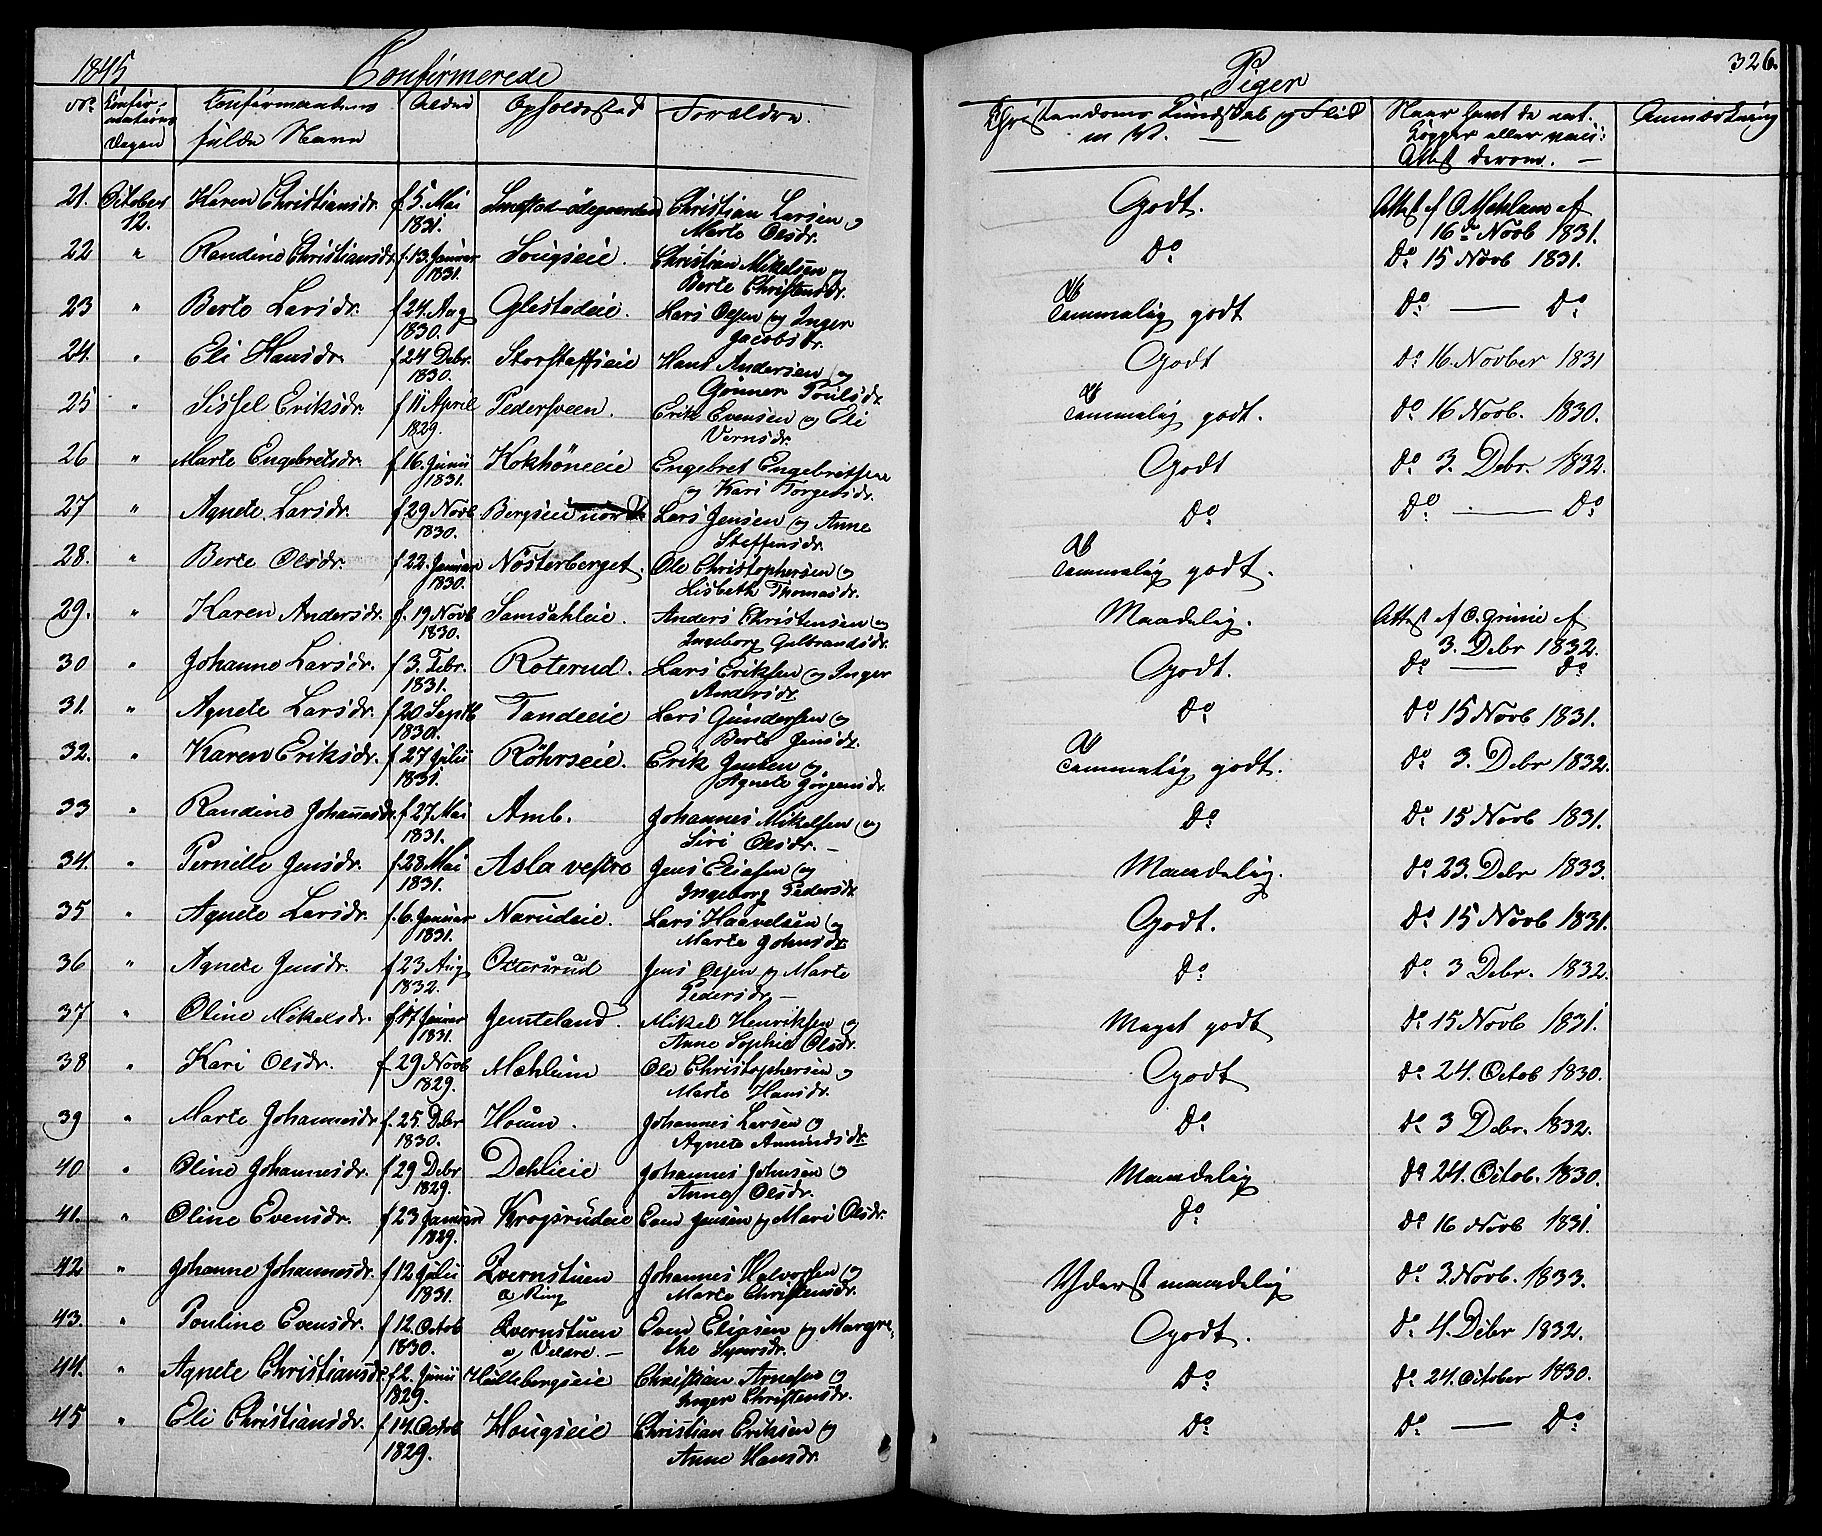 1845 Confirmerede Piger 326.
No. Confirmations Dagen Konfirmantens fulde Navn Alder Opholdssted Forældre. Christendoms Kundskab og Flid m. V. — Naar havt de nat. Kopper eller vacc: Attest derom. — Anmærkning
21. October 12. Karen Christiansdr. f. 5. Mai 1831. Christian Larsen og Marte Olsdr. Godt. Attest af O. Mehlum af 16de Novb 1831.
22 " Randine Christiansdr. f. 13. Januar 1831. Christian Mikelsen og Berte Christensdr. Do Do 15 Novb 1831.
23 " Berte Larsdr. f 24. Aug 1830. Glestadeie. Lars Olsen og Inger Jacobsdr. Temmelig godt Do — Do
24. " Eli Hansdr. f 24 Debr. 1830. Storstaffseie Hans Andersen og Gunner Poulsdr. Godt Do 16. Novber 1831
25 " Sissel Eriksdr. f 11 April 1829. Pedersveen. Erik Evensen og Eli Temmelig godt. Do 16 Novb. 1830.
26 " Marte Engebretsdr. f 16. Junii 1831. Engebret Engebretsen og Kari Torgersdr. Godt Do 3. Debr. 1832.
27 " Agnete Larsdr. f 29 Novb 1830. Bergseie Lars Jensen og Anne Steffensdr. Do Do — Do
28. " Berte Olsdr. f 22. Januar 1830. Nøsterberget. Ole Christophersen og Lisbeth Thomasdr. Temmelig godt.
29. " Karen Andersdr. f. 19 Novb 1830. Samsahleie. Anders Christensen og Ingeborg Gulbrandsdr. Maadelig. Attest af C. Grimie af 3. Debr 1832.
30 " Johanne Larsdr. f 3. Febr. 1831. Roterud. Lars Eriksen og Inger Andersdr. Godt. Do — Do
31. " Agnete Larsdr. f 20 Septb 1830. Tandeeie Lars Gundersen og Berte Jensdr. Do Do 15 Novb 1831.
32. " Karen Eriksdr. f 27 Julii 1831. Røhrseie. Erik Jensen og Agnete Jørgensdr. Temmelig godt. Do 3. Debr 1832.
33 " Randine Johannesdr. f 27. Mai 1831. Amb. Johannes Mikelsen og Siri Olsdr. — Do Do 15 Novb 1831.
34. " Pernille Jensdr. f. 28. Mai 1831. Asla vestre Jens Eliasen og Ingeborg Pedersdr. Maadelig. Do 23. Debr 1833.
35 " Agnete Larsdr. f. 6. Januar 1831. Narudeie. Lars Haavelsen og Marte Johnsdr. Godt. Do 15 Novb 1831.
36 " Agnete Jensdr. f 23 Aug 1832. Jens Olsen og Marte Pedersdr. — Do Do 3 Debr. 1832.
37 " Oline Mikelsdr. f 17 Januar 1831. Jemteland. Mikel Henriksen og Anne Sophie Olsdr. Meget godt Do 15 Novb 1831.
38 " Kari Olsdr. f 29 Novb 1829. Mehlum Ole Christophersen og Marte Hansdr. Godt Do 24. Octob 1830.
39 " Marte Johannesdr f. 25. Debr 1830. Houm. Johannes Larsen og Agnete Amundsdr. Do Do 3 Debr. 1832.
40 " Oline Johannesdr. f 29 Debr 1829. Dehlieie Johannes Johnsen og Anne Olsdr. Maadelig Do 24. Octob. 1830.
41. " Oline Evensdr. f 23 Januar 1829. Krogsrudeie Even Jensen og Mari Olsdr. Do Do 16 Novb 1831
42 " Johanne Johannesdr. f 12 Julii 1831. Qvernstuen a Ring Johannes Halvorsen og Marte Christensdr. Yderst maadelig Do 3. Novb. 1833.
43. " Pouline Evensdr. f 12. Octob 1830. Qvernstuen a Veldre. — Even Elipsen og Margrethe Syversdr. Godt. Do 4. Debr 1832.
44. " Agnete Christiansdr f 2. Junii 1829. Hullebergseie Christian Arnesen og Inger Christensdr. Do Do 24. October 1830.
45 " Eli Christiansdr. f 14. Octob 1829. Hougseie Christian Eriksen og Anne Hansdr. Do Do — Do